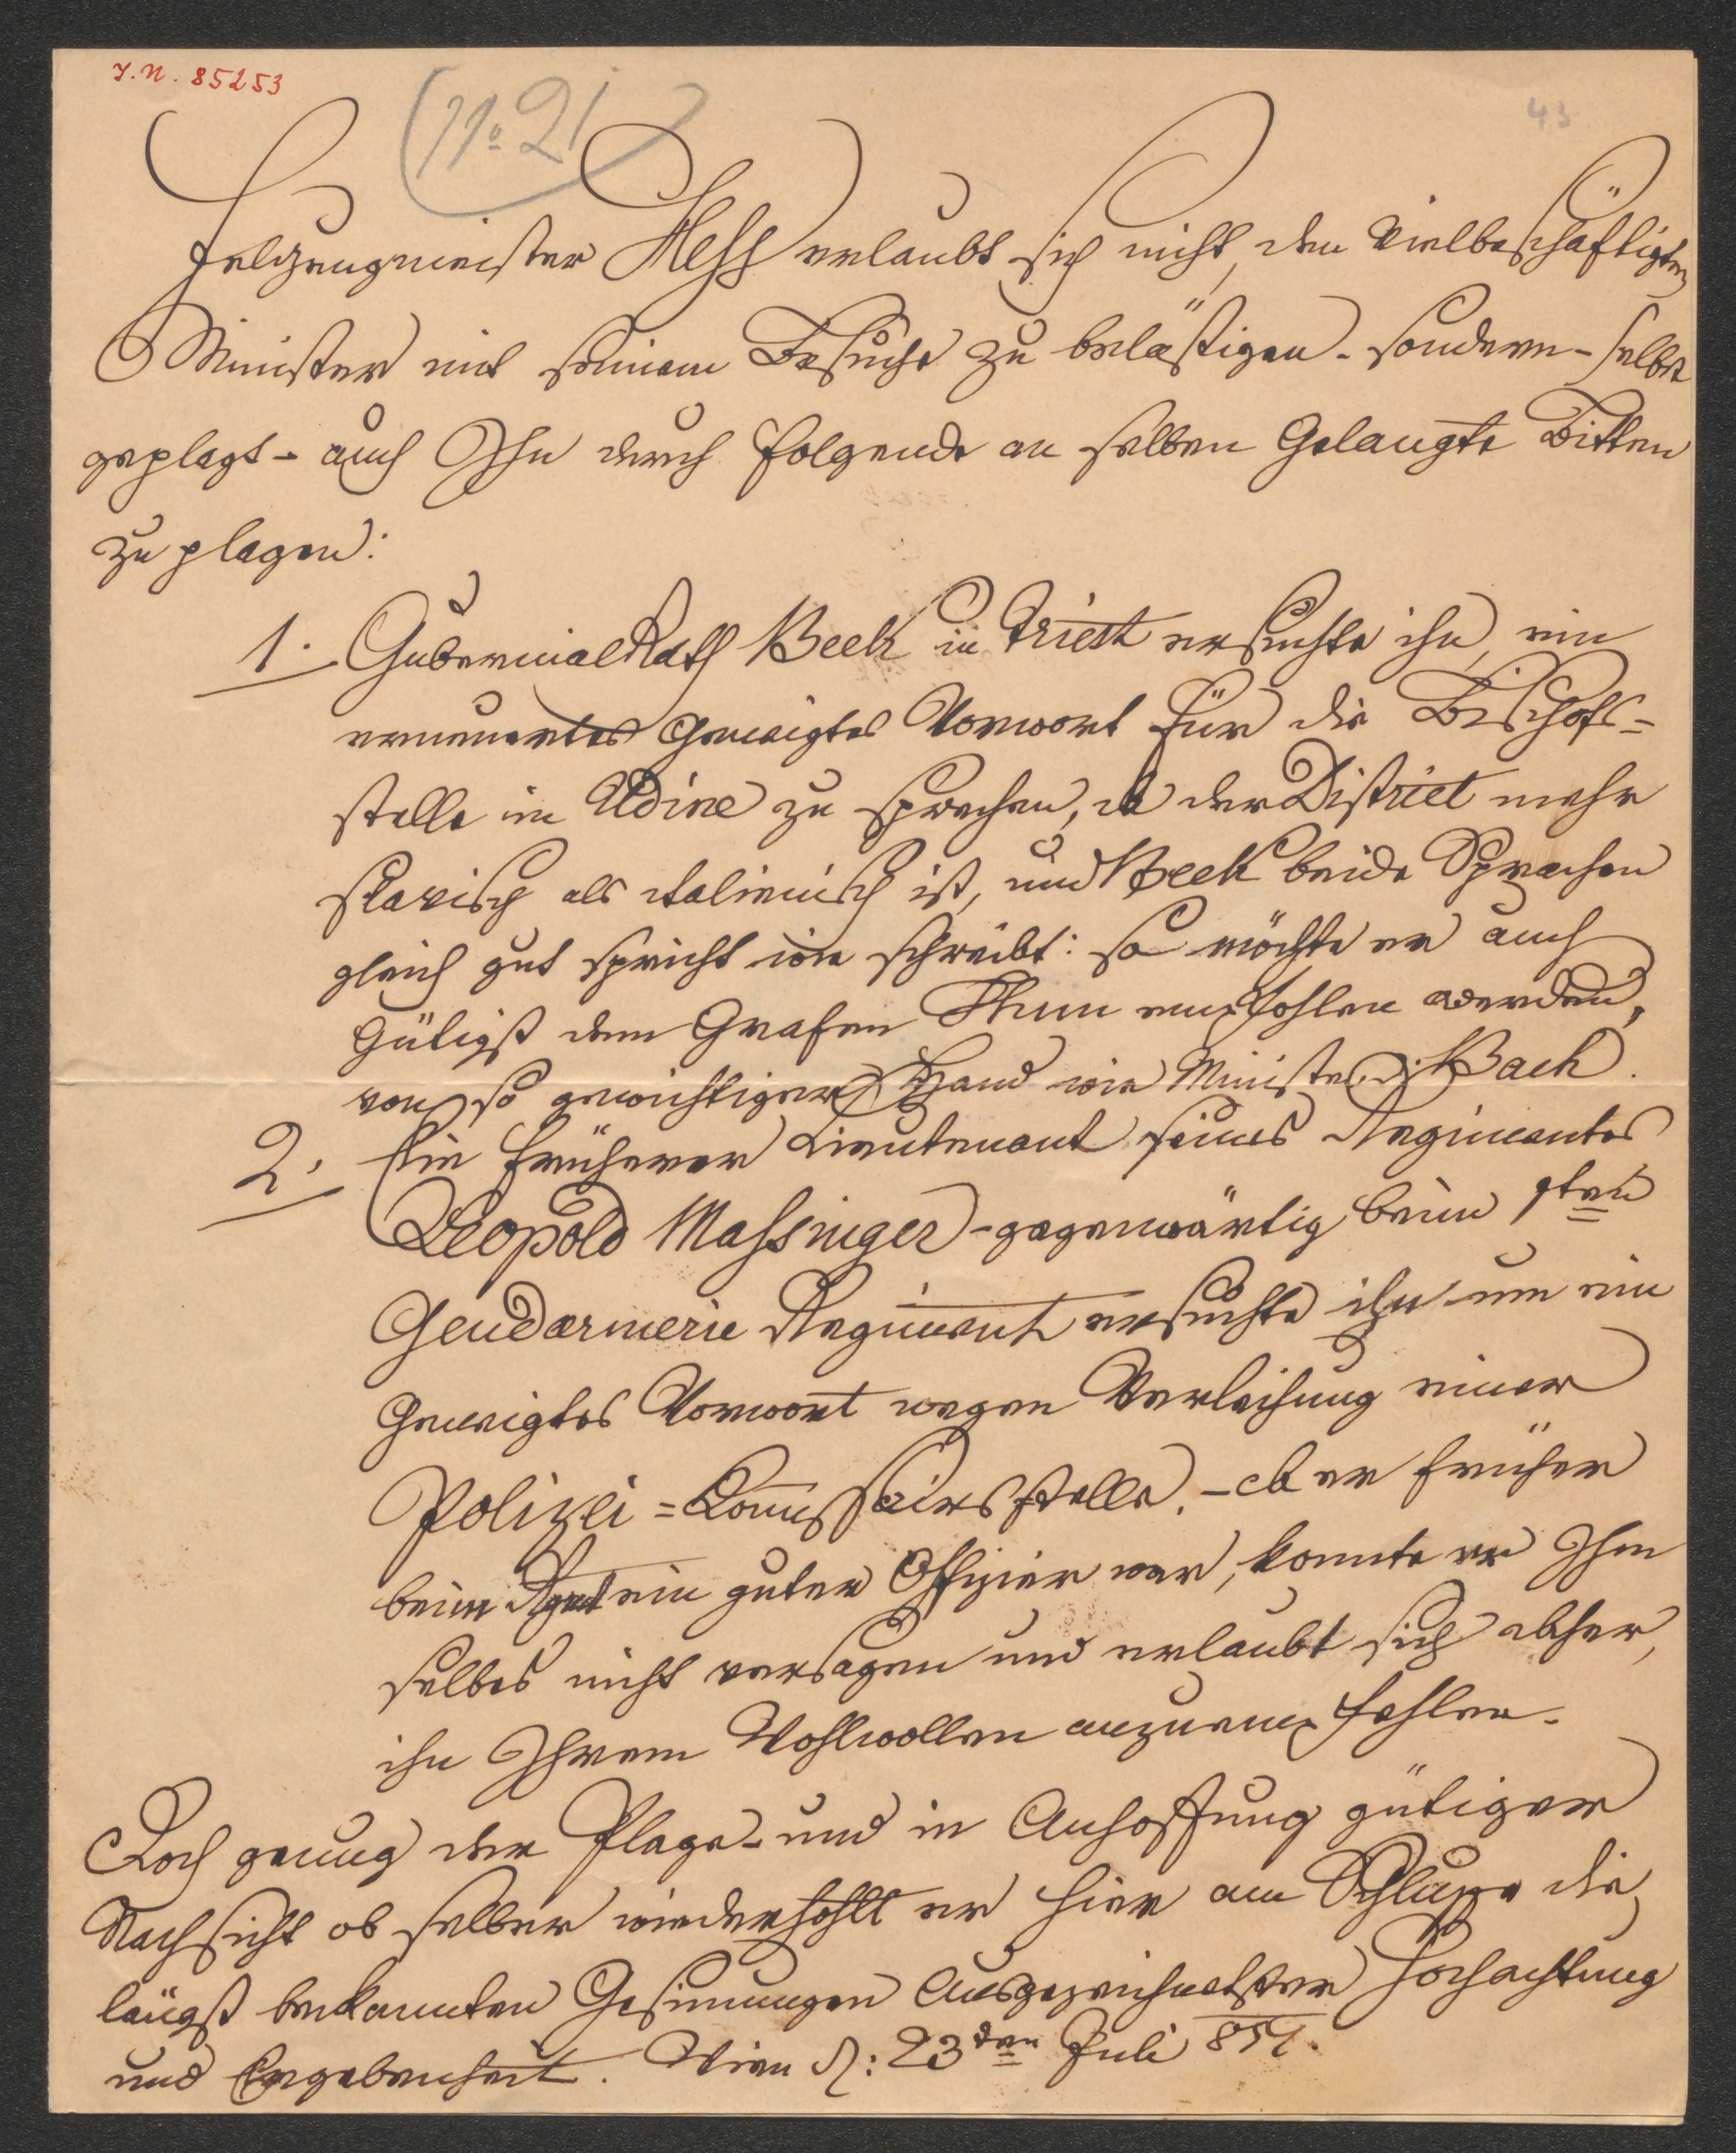 J.N. 85253
(No 21)
43
Feldzeugmeister Heß erlaubt sich nicht, den Vielbeschäftigten
Minister mit seinem Besuche zu belästigen - sondern - selbst
geplagt - auch Ihn durch folgende an selben Gelangte Bitten
zu plagen:
1. GubernialRath Beck in Triest ersuchte ihn, ein
erneuertes Geneigtes Vorwort für die Bischofs=
stelle in Udine zu sprechen, da der District mehr
slavisch als italienisch ist, und Beck beide Sprachen
gleich gut spricht wie schreibt: so möchte er auch
Gütigst dem Grafen Thun empfohlen werden,
von so gewichtiger Hand wie Minister Bach.
2. Ein früherer Lieutenant seines Regimentes
Leopold Massinger - gegenwärtig beim 1ten
Gendarmerie Regiment ersuchte ihn um ein
Geneigtes Vorwort wegen Verleihung einer
Polizei=Commissairsstelle. - da er früher
beim Rgmt ein guter Offizier war, konnte er Ihm
selbes nicht versagen und erlaubt sich daher,
ihn Ihrem Wohlwollen anzuempfehlen.
Doch genug der Plage - und in Anhoffung gütiger
Nachsicht ob selber wiederhohlt er hier am Schluße die
längst bekannten Gesinnungen Ausgezeichnetster Hochachtung
und Ergebenheit. Wien d: 23ten Juli 851.